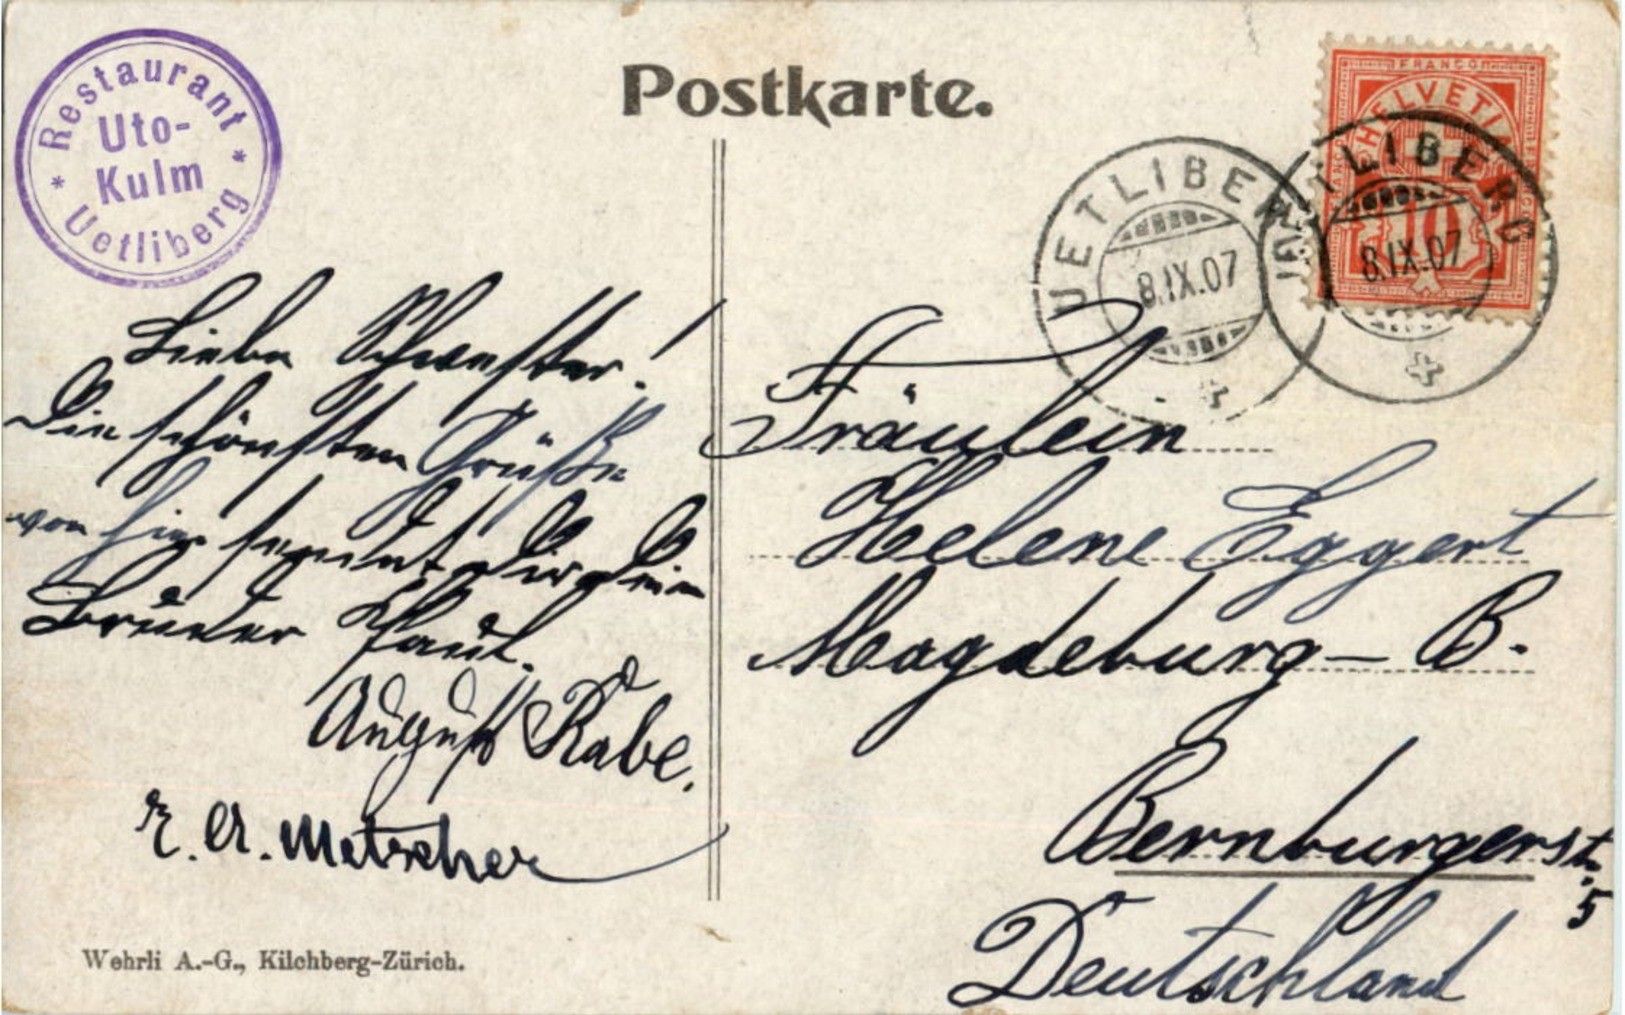 Postkarte.
Restaurant
Uto-
Kulm
* Uetliberg *
FRANCO
HELVETIA
10
UETLIBERG
8.IX.07
UETLIBERG
8.IX.07
Liebe Schwester!
Die schönsten Grüße
von hier sendet Dir Dein
Bruder Paul.
August Rabe.
E. A. Metscher
Fräulein
Helene Eggert
Magdeburg – B.
Bernburgerst.
5
Deutschland
Wehrli A.-G., Kilchberg-Zürich.